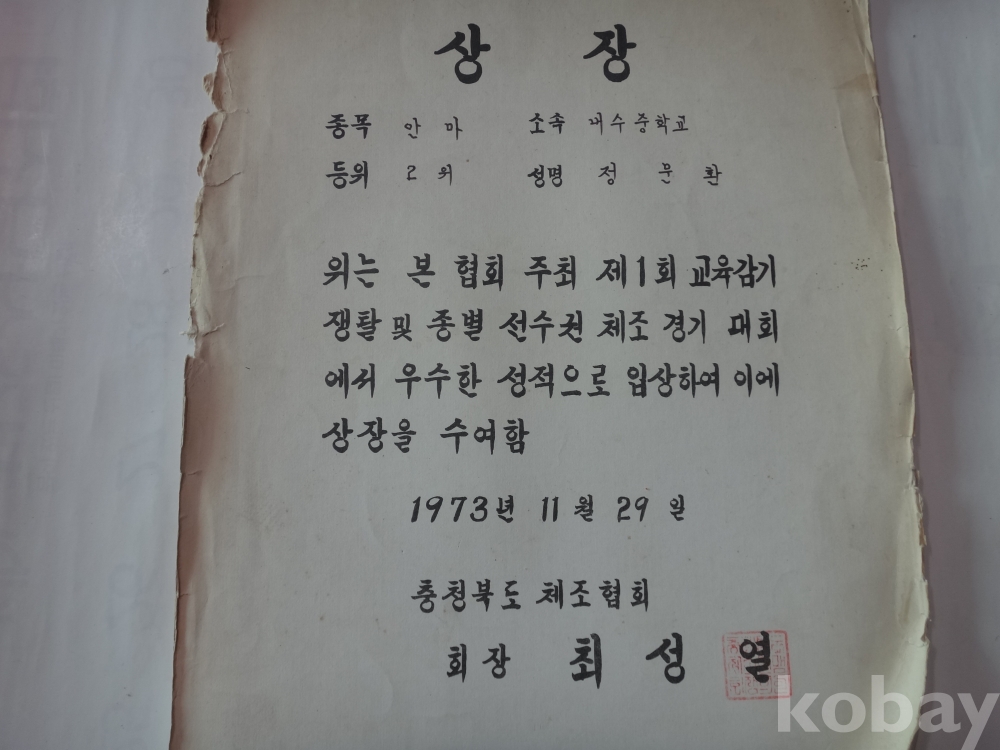 상 장
종목 안 마 소속 대수중학교
등위 2 위 성명 정 문 환
위는 본 협회 주최 제1회 교육감기
쟁탈 및 종별 선수권 체조 경기 대회
에서 우수한 성적으로 입상하여 이에
상장을 수여함
1973년 11월 29일
충청북도 체조협회
회장 최 성 열
kobay